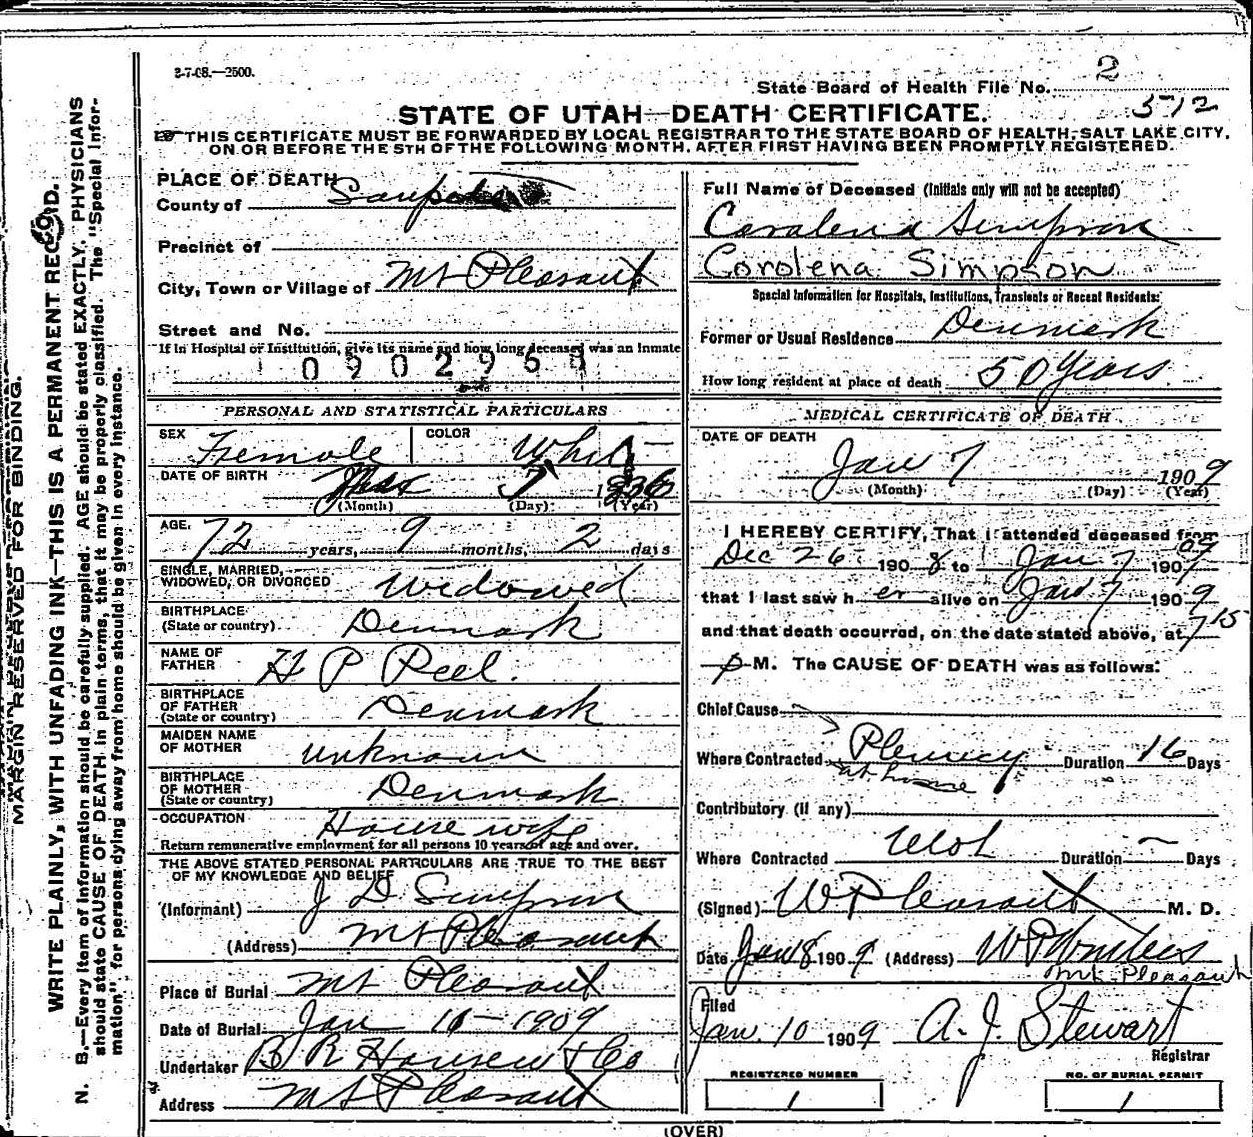 2-7-08.—2500.
State Board of Health File No. 2
372
STATE OF UTAH—DEATH CERTIFICATE.
THIS CERTIFICATE MUST BE FORWARDED BY LOCAL REGISTRAR TO THE STATE BOARD OF HEALTH, SALT LAKE CITY,
ON OR BEFORE THE 5TH OF THE FOLLOWING MONTH, AFTER FIRST HAVING BEEN PROMPTLY REGISTERED.
PLACE OF DEATH
County of Sanpete
Precinct of
City, Town or Village of Mt Pleasant
Street and No.
If in Hospital or Institution, give its name and how long deceased was an inmate
0902969
PERSONAL AND STATISTICAL PARTICULARS
SEX Female COLOR White
DATE OF BIRTH 5 1836
(Month) (Day) (Year)
AGE. 72 years, 9 months, 2 days
SINGLE, MARRIED,
WIDOWED, OR DIVORCED Widowed
BIRTHPLACE
(State or country) Denmark
NAME OF
FATHER H P Peel.
BIRTHPLACE
OF FATHER
(State or country) Denmark
MAIDEN NAME
OF MOTHER unknown
BIRTHPLACE
OF MOTHER
(State or country) Denmark
OCCUPATION House wife
Return remunerative employment for all persons 10 years of age and over.
THE ABOVE STATED PERSONAL PARTICULARS ARE TRUE TO THE BEST
OF MY KNOWLEDGE AND BELIEF
(Informant) J D Simpson
(Address) Mt Pleasant
Place of Burial Mt Pleasant
Date of Burial Jan 10-1909
Undertaker B R Hansen & Co
Address Mt Pleasant
Full Name of Deceased (Initials only will not be accepted)
Corolena Simpson
Corolena Simpson
Special Information for Hospitals, Institutions, Transients or Recent Residents:
Former or Usual Residence Denmark
How long resident at place of death 50 Years
MEDICAL CERTIFICATE OF DEATH
DATE OF DEATH
Jan 7 1909
(Month) (Day) (Year)
I HEREBY CERTIFY, That I attended deceased from
Dec 26 1908 to Jan 7 1909
that I last saw her alive on Jan 7 1909
and that death occurred, on the date stated above, at 7 15
P M. The CAUSE OF DEATH was as follows:
Chief Cause
Where Contracted Pleurisy Duration 16 Days
at home
Contributory (if any)
Where Contracted Duration — Days
(Signed) W Pleasant M. D.
Date Jan 8 1909 (Address)
Mt. Pleasant
Filed
Jan. 10 1909 A. J. Stewart
Registrar
REGISTERED NUMBER
1
NO. OF BURIAL PERMIT
1
(OVER)
MARGIN RESERVED FOR BINDING.
WRITE PLAINLY, WITH UNFADING INK—THIS IS A PERMANENT RECORD.
N. B.—Every item of information should be carefully supplied. AGE should be stated EXACTLY. PHYSICIANS
should state CAUSE OF DEATH in plain terms, that it may be properly classified. The "Special Infor-
mation" for persons dying away from home should be given in every instance.